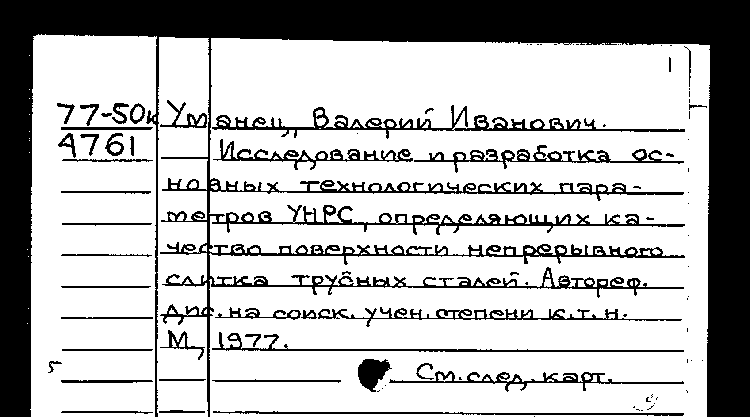 1
77-50к Уманец, Валерий Иванович.
4761 Исследование и разработка ос-
новных технологических пара-
метров УНРС, определяющих ка-
чество поверхности непрерывного
слитка трубных сталей. Автореф.
дис. на соиск. учен. степени к.т.н.
М., 1977.
5
См. след. карт.